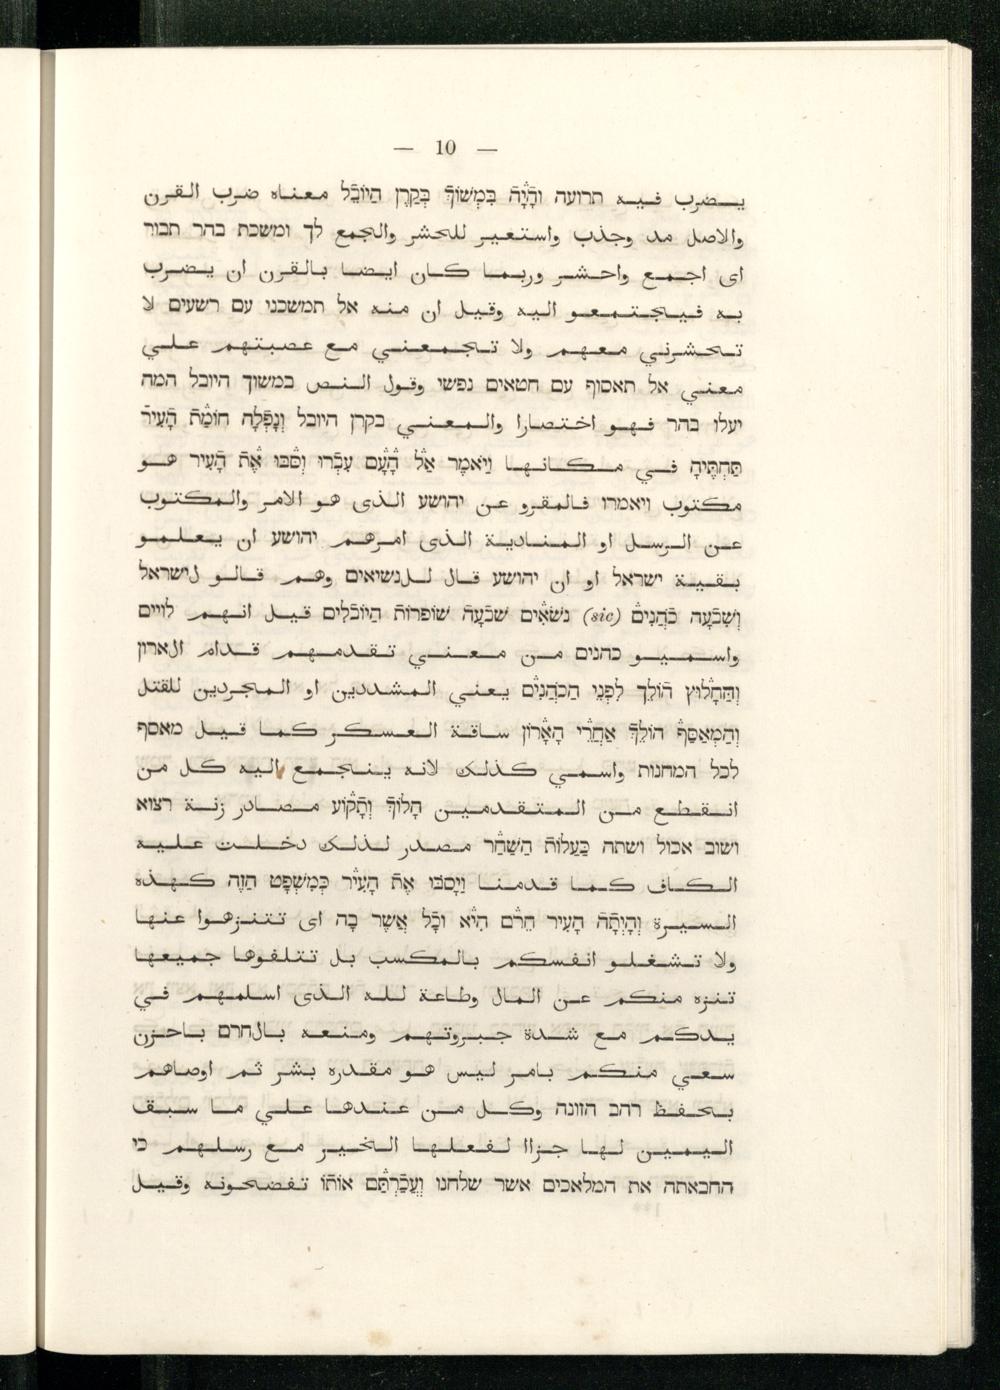 — 10 —
يضرب فيه תרועה וְהָיָה בִּמְשׁוֹךְ בְּקֶרֶן הַיּוֹבֵל معناه ضرب القرن
والاصل مد وجذب واستعير للحشر والجمع לך ומשכת בהר תבור
اى اجمع واحشر وربما كان ايضا بالقرن ان يضرب
به فيجتمعو اليه وقيل ان منه אל תמשכני עם רשעים لا
تحشرني معهم ولا تجمعني مع عصبتهم علي
معني אל תאסוף עם חטאים נפשי وقول النص במשוך היובל המה
יעלו בהר فهو اختصارا والمعني בקרן היובל וְנָפְלָה חוֹמַת הָעִיר
תַּחְתֶּיהָ في مكانها וַיֹּאמֶר אֶל הָעָם עִבְרוּ וְסֹבּוּ אֶת הָעִיר هو
مكتوب ויאמרו فالمقرو عن יהושע الذى هو الامر والمكتوب
عن الرسل او المنادية الذى امرهم יהושע ان يعلمو
بقية ישראל او ان יהושע قال للנשיאים وهم قالو לישראל
וְשִׁבְעָה כֹהֲנִים (sic) נֹשְׂאִים שִׁבְעָה שׁוֹפְרוֹת הַיּוֹבְלִים قيل انهم לויים
واسميو כהנים من معني تقدمهم قدام الארון
וְהַחָלוּץ הוֹלֵךְ לִפְנֵי הַכֹּהֲנִים يعني المشددين او المجردين للقتل
וְהַמְאַסֵּף הוֹלֵךְ אַחֲרֵי הָאָרוֹן ساقة العسكر كما قيل מאסף
לכל המחנות واسمي كذلك لانه ينجمع اليه كل من
انقطع من المتقدمين הָלוֹךְ וְתָקוֹעַ مصادر زنة רצוא
ושוב אכול ושתה כַּעֲלוֹת הַשַּׁחַר مصدر لذلك دخلت عليه
الكاف كما قدمنا וַיָּסֹבּוּ אֶת הָעִיר כְּמִשְׁפָּט הַזֶּה كهذه
السيرة וְהָיְתָה הָעִיר חֵרֶם הִיא וְכָל אֲשֶׁר בָּהּ اى تتنزهوا عنها
ولا تشغلو انفسكم بالمكسب بل تتلفوها جميعها
تنزه منكم عن المال وطاعة لله الذى اسلمهم في
يدكم مع شدة جبروتهم ومنعه بالחרם باحزن
سعي منكم بامر ليس هو مقدره بشر ثم اوصاهم
بحفظ רחב הזונה وكل من عندها علي ما سبق
اليمين لها جزاا لفعلها الخير مع رسلهم כי
החבאתה את המלאכים אשר שלחנו וַעֲכַרְתֶּם אוֹתוֹ تفضحونه وقيل